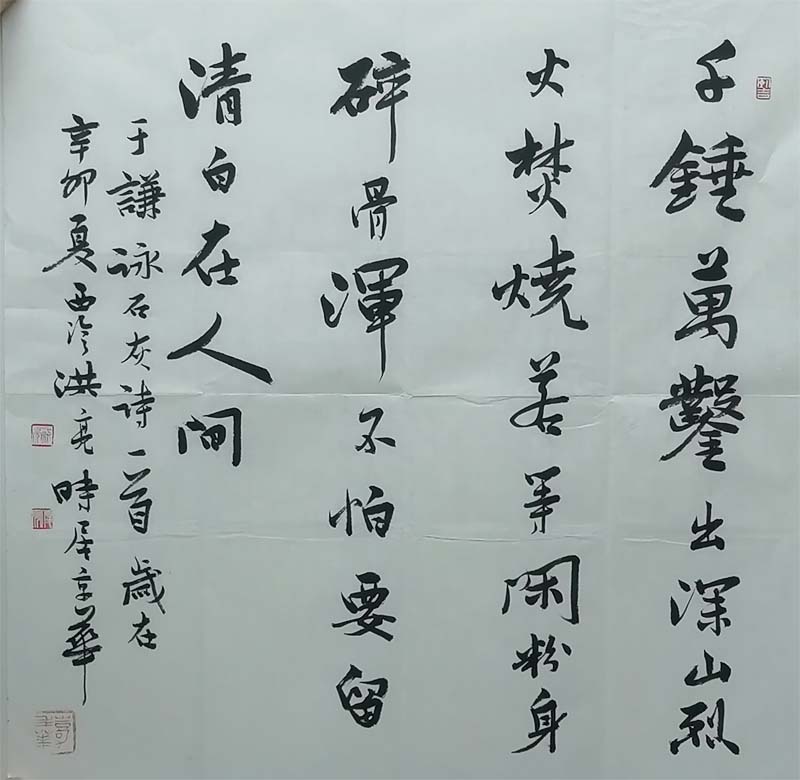 千錘萬鑿出深山烈
火焚燒若等閑粉身
碎骨渾不怕要留
清白在人间
于謙詠石灰诗一首歲在
辛卯夏西泠洪亮時居京華